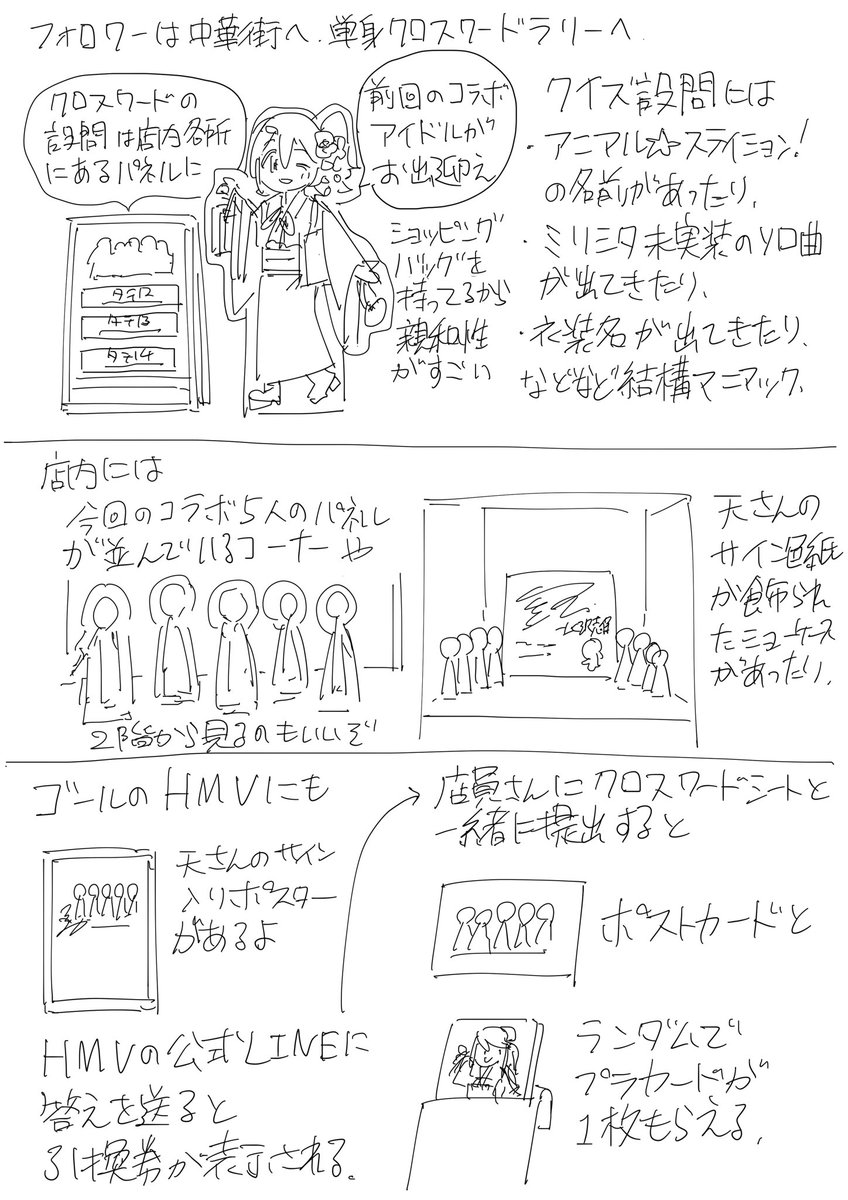 フォロワーは中華街へ、単身クロスワードラリーへ
クロスワードの
設問は店内各所
にあるパネルに
前回のコラボ
アイドルが
お出迎え
タテ12
タテ13
タテ14
ショッピング
バッグを
持ってるから
親和性
がすごい
クイズ設問には
・アニマル☆ステイション!
の名前があったり、
・ミリシタ未実装のソロ曲
が出てきたり、
・衣装名が出てきたり、
などなど結構マニアック、
店内には
今回のコラボ5人のパネル
が並んでいるコーナーや
2階から見るのもいいぞ
天さんの
サイン色紙
が飾られ
たショーケース
があったり、
ゴールのHMVにも
天さんのサイン
入りポスター
があるよ
HMVの公式LINEに
答えを送ると
引換券が表示される。
店員さんにクロスワードシートと
一緒に提出すると
ポストカードと
ランダムで
プラカードが
1枚もらえる、